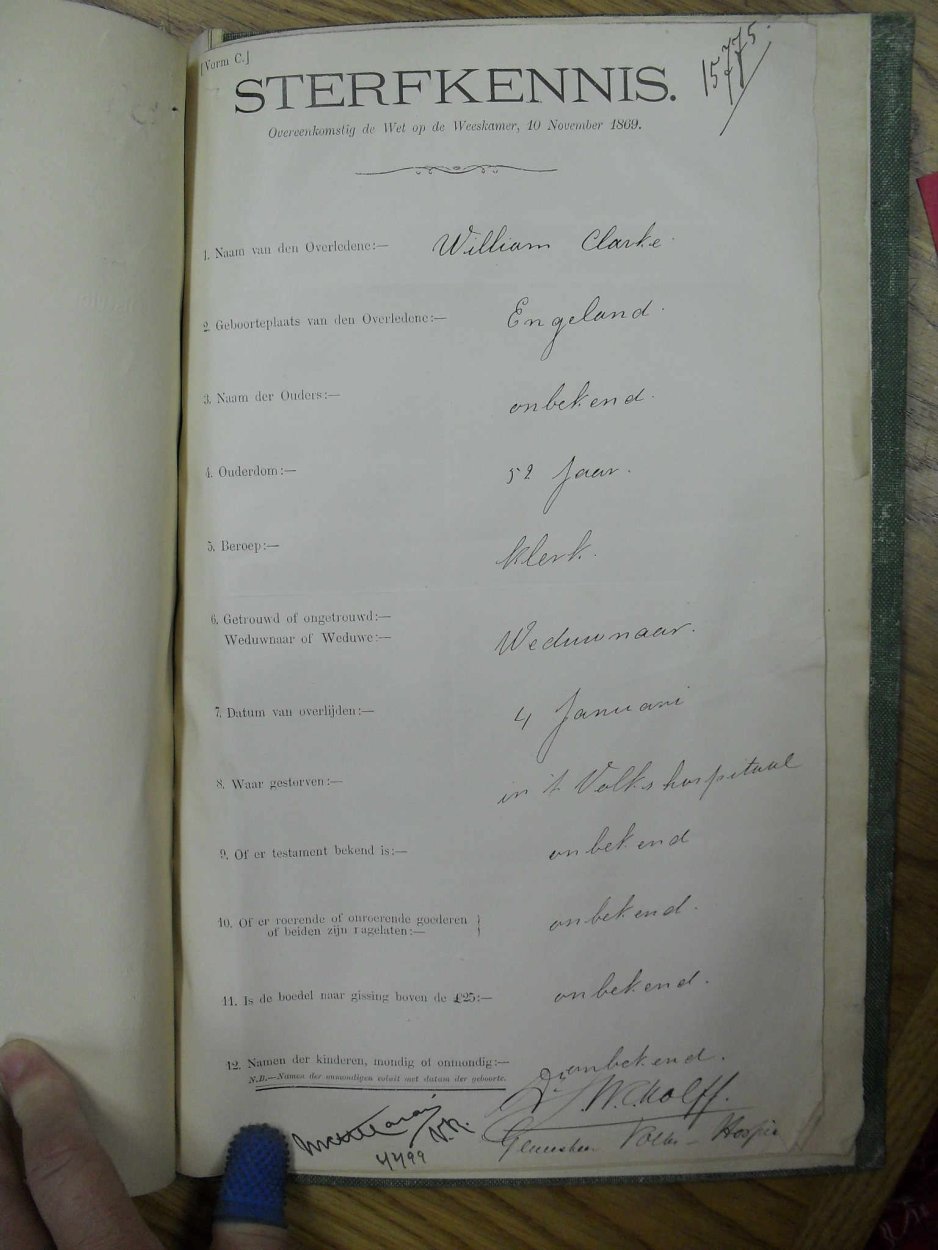 [Vorm C.]
15775.
STERFKENNIS.
Overeenkomstig de Wet op de Weeskamer, 10 November 1869.
1. Naam van den Overledene:— William Clarke.
2. Geboorteplaats van den Overledene:— Engeland.
3. Naam der Ouders:— onbekend.
4. Ouderdom:— 52 Jaar.
5. Beroep:— Klerk.
6. Getrouwd of ongetrouwd:—
Weduwnaar of Weduwe:— Weduwnaar.
7. Datum van overlijden:— 4 Januari
8. Waar gestorven:— in 't Volks hospitaal
9. Of er testament bekend is:— onbekend
10. Of er roerende of onroerende goederen
of beiden zijn nagelaten:— onbekend.
11. Is de boedel naar gissing boven de £25:— onbekend.
12. Namen der kinderen, mondig of onmondig:— onbekend.
N.B.—Namen der onmondigen voluit met datum der geboorte.
Dr. Kolff.
Volks-Hospit
4/1/99